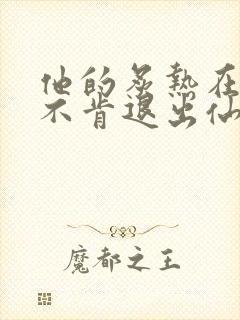 他的炙热在
不肯退出仙
魔都之王